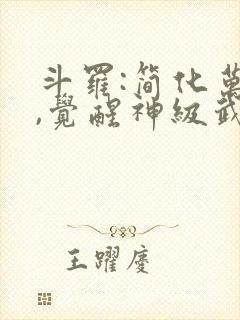 斗羅:簡化萬
,覺醒神級武
王躍慶